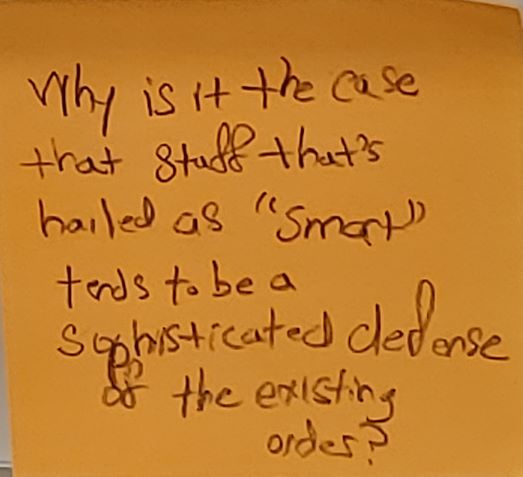 Why is it the case
that stuff that's
hailed as "smart"
tends to be a
sophisticated defense
of the existing
order?